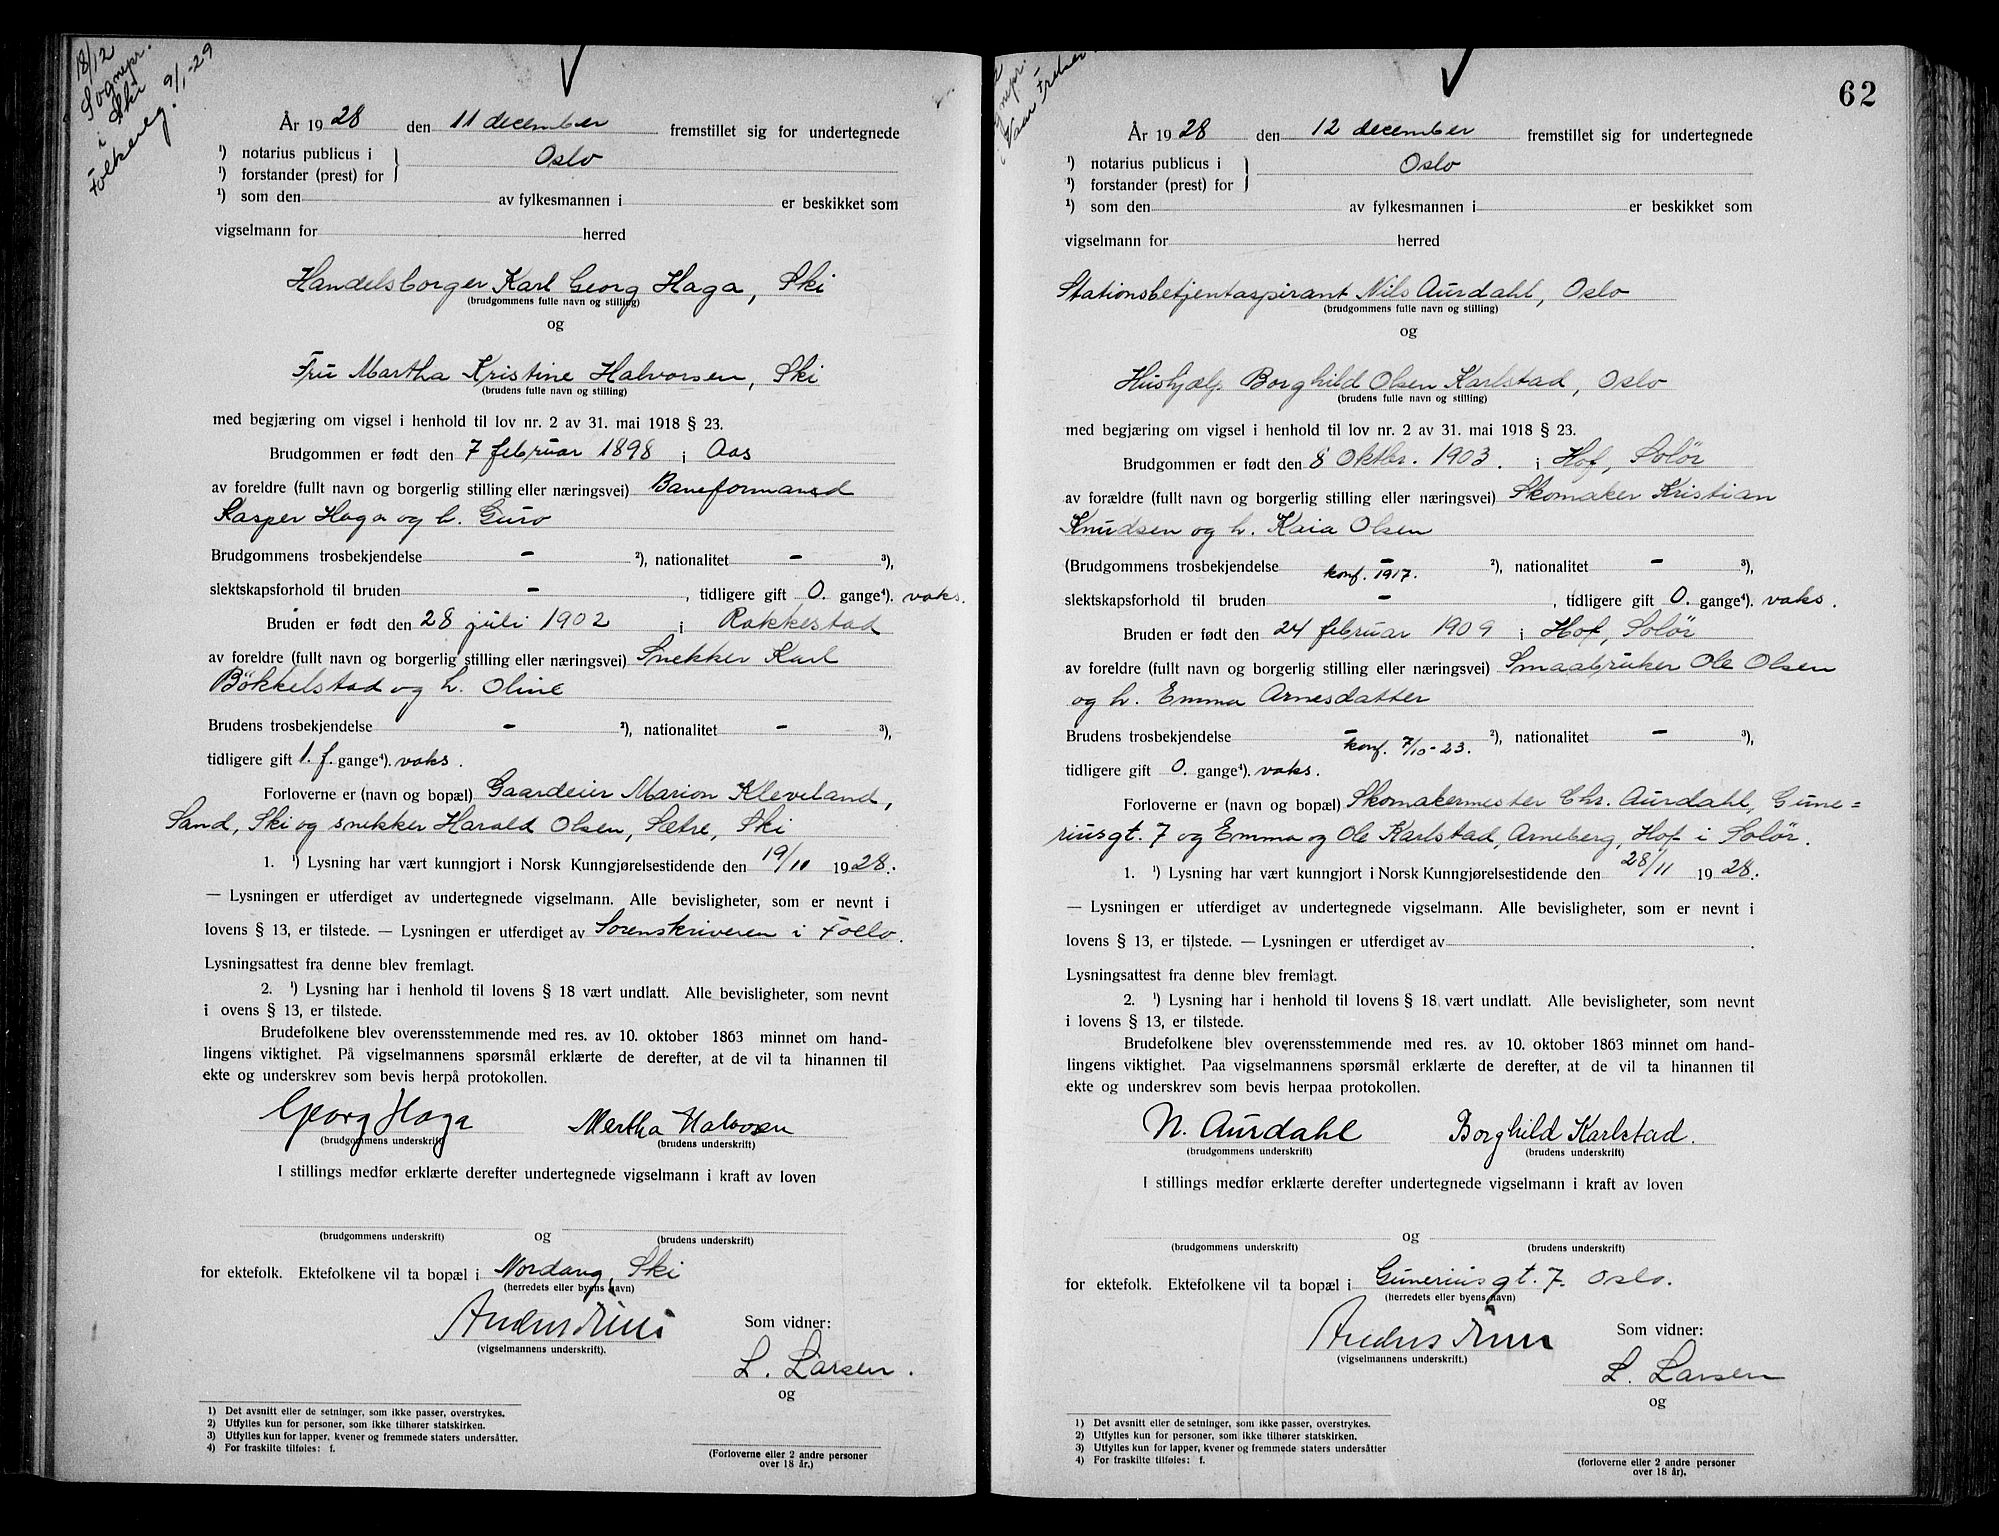 18/12
Sognepr.
i Ski
Folkereg. 9/1-29
År 1928 den 11 december fremstillet sig for undertegnede
¹) notarius publicus i } Oslo
¹) forstander (prest) for
¹) som den av fylkesmannen i er beskikket som
vigselmann for herred
Handelsborger Karl Georg Haga, Ski
(brudgommens fulle navn og stilling)
og
Fru Martha Kristine Halvorsen, Ski
(brudens fulle navn og stilling)
med begjæring om vigsel i henhold til lov nr. 2 av 31. mai 1918 § 23.
Brudgommen er født den 7 februar 1898 i Aas
av foreldre (fullt navn og borgerlig stilling eller næringsvei) Baneformand
Kasper Haga og h. Guro
Brudgommens trosbekjendelse – ²), nationalitet – ³),
slektskapsforhold til bruden – , tidligere gift 0. gange⁴). vaks.
Bruden er født den 28 juli 1902 i Rakkestad
av foreldre (fullt navn og borgerlig stilling eller næringsvei) Snekker Karl
Bøkkelstad og h. Oline
Brudens trosbekjendelse – ²), nationalitet – ³),
tidligere gift 1. f. gange⁴). vaks.
Forloverne er (navn og bopæl) Gaardeier Marion Kleveland,
Sand, Ski og snekker Harald Olsen, Sætre, Ski
1. ¹) Lysning har vært kunngjort i Norsk Kunngjørelsestidende den 19/11 1928.
— Lysningen er utferdiget av undertegnede vigselmann. Alle bevisligheter, som er nevnt i
lovens § 13, er tilstede. — Lysningen er utferdiget av Sorenskriveren i Follo.
Lysningsattest fra denne blev fremlagt.
2. ¹) Lysning har i henhold til lovens § 18 vært undlatt. Alle bevisligheter, som nevnt
i ovens § 13, er tilstede.
Brudefolkene blev overensstemmende med res. av 10. oktober 1863 minnet om hand-
lingens viktighet. På vigselmannens spørsmål erklærte de derefter, at de vil ta hinannen til
ekte og underskrev som bevis herpå protokollen.
Georg Haga Martha Halvorsen
(brudgommens underskrift) (brudens underskrift)
I stillings medfør erklærte derefter undertegnede vigselmann i kraft av loven
og
(brudgommens underskrift) (brudens underskrift)
for ektefolk. Ektefolkene vil ta bopæl i Nordang, Ski
(herredets eller byens navn)
(vigselmannens underskrift).
Som vidner:
L. Larsen.
og
(Forloverne eller 2 andre personer
over 18 år.)
1) Det avsnitt eller de setninger, som ikke passer, overstrykes.
2) Utfylles kun for personer, som ikke tilhører statskirken.
3) Utfylles kun for lapper, kvener og fremmede staters undersåtter.
4) For fraskilte tilføies: f.
62
År 1928 den 12 december fremstillet sig for undertegnede
¹) notarius publicus i } Oslo
¹) forstander (prest) for
¹) som den av fylkesmannen i er beskikket som
vigselmann for herred
Stationsbetjentaspirant Nils Aurdahl, Oslo
(brudgommens fulle navn og stilling)
og
Hushjælp Borghild Olsen Karlstad, Oslo
(brudens fulle navn og stilling)
med begjæring om vigsel i henhold til lov nr. 2 av 31. mai 1918 § 23.
Brudgommen er født den 8 Oktbr. 1903. i Hof, Solør
av forældre (fullt navn og borgerlig stilling eller næringsvei) Skomaker Kristian
Knudsen og h. Kaia Olsen
(Brudgommens trosbekjendelse – konf. 1917. ²), nationalitet – ³),
slektskapsforhold til bruden – , tidligere gift 0. gange⁴). vaks.
Bruden er født den 24 februar 1909 i Hof, Solør
av foreldre (fullt navn og borgerlig stilling eller næringsvei) Smaabruker Ole Olsen
og h. Emma Arnesdatter
Brudens trosbekjendelse – konf. 7/10-23. ²), nationalitet – ³),
tidligere gift 0. gange⁴). vaks.
Forloverne er (navn og bopæl) Skomakermester Chr. Aurdahl, Gune=
riusgt. 7 og Emma og Ole Karlstad, Arneberg, Hof i Solør.
1. ¹) Lysning har vært kunngjort i Norsk Kunngjørelsestidende den 28/11 1928.
— Lysningen er utferdiget av undertegnede vigselmann. Alle bevisligheter, som er nevnt i
lovens § 13, er tilstede. — Lysningen er utferdiget av .
Lysningsattest fra denne blev fremlagt.
2. ¹) Lysning har i henhold til lovens § 18 vært undlatt. Alle bevisligheter, som nevnt
i lovens § 13, er tilstede.
Brudefolkene blev overensstemmende med res. av 10. oktober 1863 minnet om hand-
lingens viktighet. Paa vigselmannens spørsmål erklærte de derefter, at de vil ta hinannen til
ekte og underskrev som bevis herpaa protokollen.
N. Aurdahl Borghild Karlstad.
(brudgommens underskrift) (brudens underskrift)
I stillings medfør erklærte derefter undertegnede vigselmann i kraft av loven
og
(brudgommens underskrift) (brudens underskrift)
for ektefolk. Ektefolkene vil ta bopæl i Guneriusgt. 7. Oslo.
(herredets eller byens navn)
(vigselmannens underskrift.)
Som vidner:
L. Larsen
og
(forloverne eller 2 andre personer
over 18 år).
1) Det avsnitt eller de setninger, som ikke passer, overstrykes.
2) Utfylles kun for personer, som ikke tilhører statskirken.
3) Utfylles kun for lapper, kvener og fremmede staters undersåtter
4) For fraskilte tilføies: f.